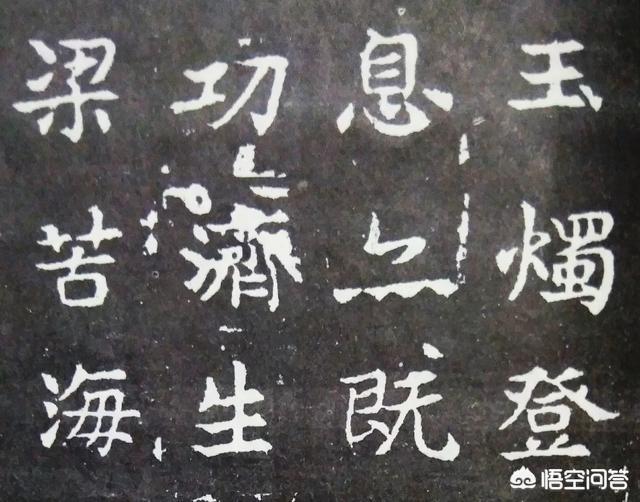 玉燭登
息既
功濟生
梁苦海
悟空问答